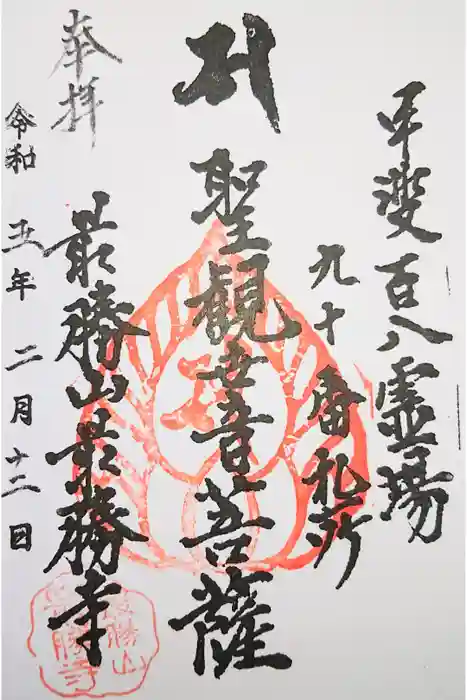 甲斐百八霊場
九十番札所
聖観世音菩薩
最勝山最勝寺
奉拝
令和五年二月十二日
最勝山
最勝寺